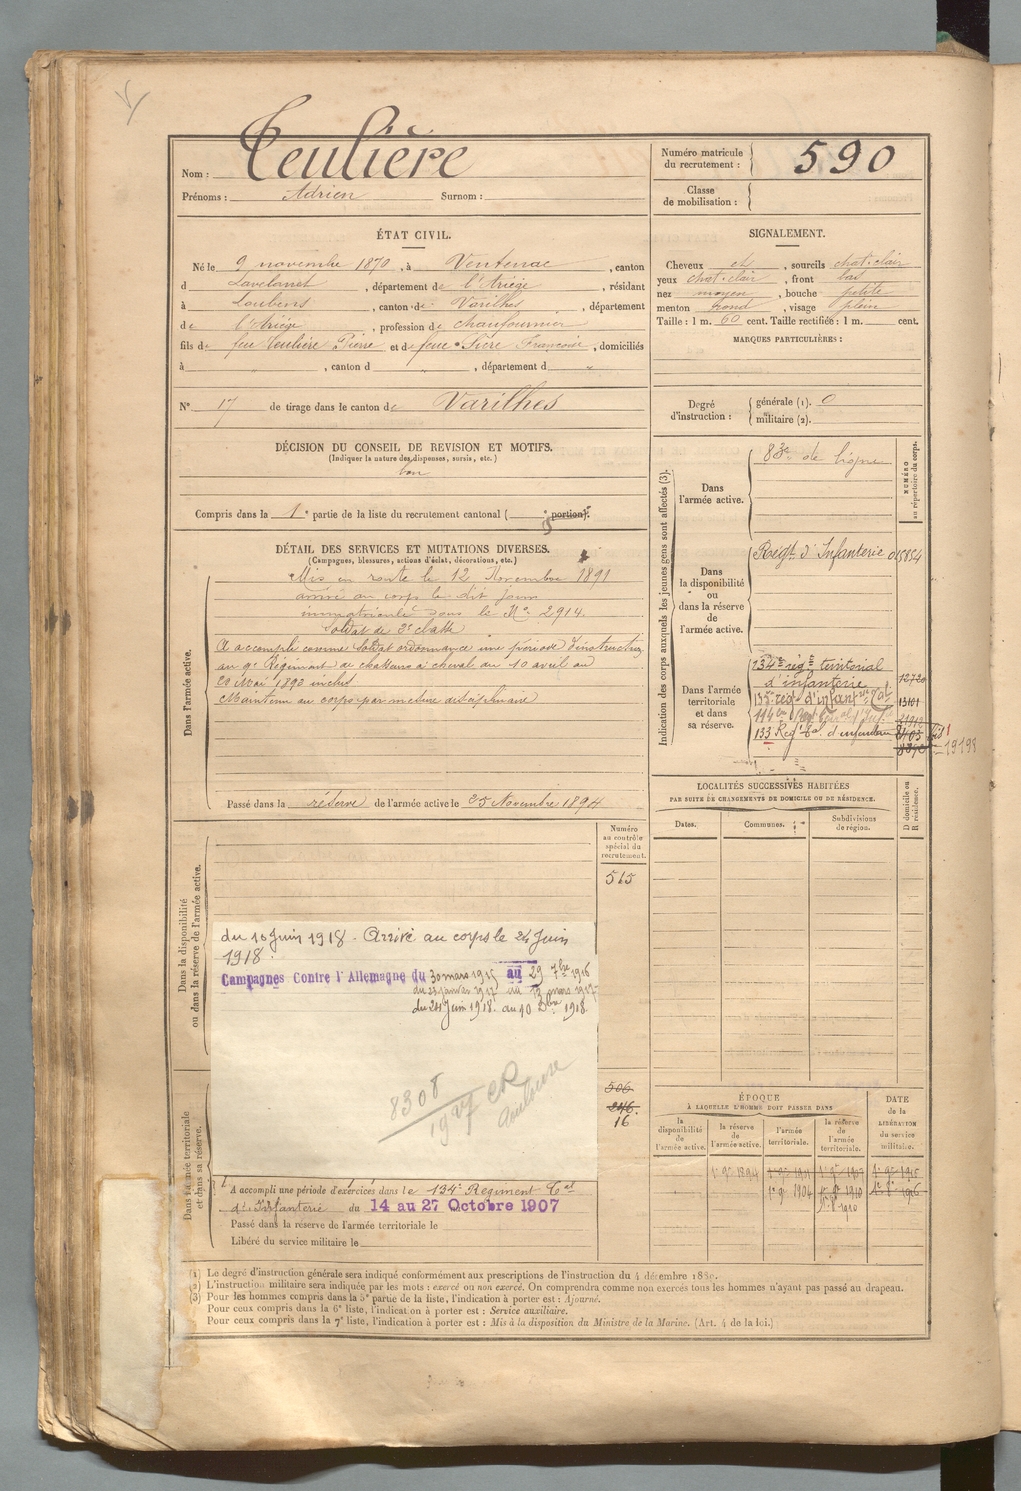 Nom : Teulière
Prénoms : Adrien Surnom :
Numéro matricule du recrutement : 590
Classe de mobilisation :
ÉTAT CIVIL.
Né le 9 novembre 1870, à Ventenac, canton
d Lavelanet, département de l'Ariège, résidant
à Loubens, canton de Varilhes, département
de l'Ariège, profession de chaufournier
fils de feu Teulière Pierre et de feue Fière Françoise, domiciliés
à , canton d , département d
N° 17 de tirage dans le canton de Varilhes
SIGNALEMENT.
Cheveux et, sourcils chat. clair
yeux chat. clair, front bas
nez moyen, bouche petite
menton rond, visage plein
Taille : 1 m. 60 cent. Taille rectifiée : 1 m. cent.
MARQUES PARTICULIÈRES :
Degré d'instruction : générale (1). 0
militaire (2).
DÉCISION DU CONSEIL DE REVISION ET MOTIFS.
(Indiquer la nature des dispenses, sursis, etc.)
bon
Compris dans la 1e partie de la liste du recrutement cantonal ( portion).
DÉTAIL DES SERVICES ET MUTATIONS DIVERSES.
(Campagnes, blessures, actions d'éclat, décorations, etc.)
Dans l'armée active.
Mis en route le 12 Novembre 1891
arrivé au corps le dit jour
immatriculé sous le No 2914.
Soldat de 2e classe
A accompli comme soldat ordonnance une période d'instruction
au 9e Régiment de chasseurs à cheval du 10 avril au
29 Mai 1893 inclus
Maintenu au corps par mesure disciplinaire
Passé dans la réserve de l'armée active le 25 Novembre 1894
Indication des corps auxquels les jeunes gens sont affectés (3).
NUMÉRO au répertoire du corps.
Dans l'armée active.
83e de ligne
Dans la disponibilité ou dans la réserve de l'armée active.
Régt d'Infanterie 015854
Dans l'armée territoriale et dans sa réserve.
134e rég. territorial
d'infanterie 12720
135e régt d'infanterie Tale 13101
144e Régt Territ d'Inf. 21912
133 Regt tal d'infanterie 8403 bis
19198
LOCALITÉS SUCCESSIVES HABITÉES
PAR SUITE DE CHANGEMENTS DE DOMICILE OU DE RÉSIDENCE.
D domicile ou R résidence.
Dates. Communes. Subdivisions de région.
Dans la disponibilité ou dans la réserve de l'armée active.
Numéro au contrôle spécial du recrutement.
515
du 10 Juin 1918 - Arrivé au corps le 24 Juin
1918.
Campagnes Contre l'Allemagne du 30 mars 1915 au 29 7bre 1916
du 23 janvier 1917 au 13 mars 1917
du 24 Juin 1918. au 10 Dbre 1918.
8308
1927 CR
Toulouse
Dans l'armée territoriale et dans sa réserve.
506
246.
16
A accompli une période d'exercices dans le 134e Régiment Tal
d'Infanterie du 14 au 27 Octobre 1907
Passé dans la réserve de l'armée territoriale le
Libéré du service militaire le
ÉPOQUE
À LAQUELLE L'HOMME DOIT PASSER DANS
la disponibilité de l'armée active.
la réserve de l'armée active.
l'armée territoriale.
la réserve de l'armée territoriale.
DATE de la LIBÉRATION du service militaire.
1er 9e 1894 1er 9e 1901 1er 9e 1907
1er 9e 1904 1er 8e 1910
(1) Le degré d'instruction générale sera indiqué conformément aux prescriptions de l'instruction du 4 décembre 1889.
(2) L'instruction militaire sera indiquée par les mots : exercé ou non exercé. On comprendra comme non exercés tous les hommes n'ayant pas passé au drapeau.
(3) Pour les hommes compris dans la 5e partie de la liste, l'indication à porter est : Ajourné.
Pour ceux compris dans la 6e liste, l'indication à porter est : Service auxiliaire.
Pour ceux compris dans la 7e liste, l'indication à porter est : Mis à la disposition du Ministre de la Marine. (Art. 4 de la loi.)